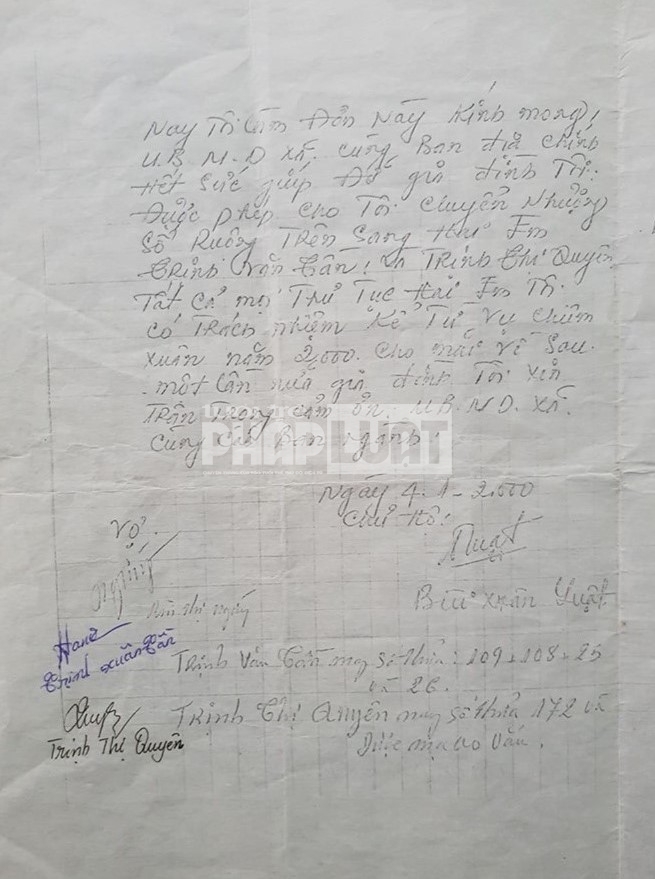 Nay Tôi làm Đơn Này Kính mong!
U.B N.D xã. cùng Ban địa chính
Hết sức giúp Đỡ gia đình Tôi.
Được phép cho Tôi chuyển Nhượng
Số Ruộng Trên Sang Hai Em
Trịnh Văn Tân! và Trịnh Thị Quyên
Tất cả mọi Thủ Tục Hai Em Tôi
có Trách nhiệm Kể Từ Vụ chiêm
xuân năm 2.000. cho mãi về sau.
một lần nữa gia đình Tôi xin
Trân Trọng cảm ơn. U.B.N.D. xã.
cùng các Ban ngành!
PHÁP LUẬT
Ngày 4.1-2.000
chủ Hộ:
Vợ
Luật
Bùi xuân Luật
thị ngáy
Trịnh xuân Tân
Trịnh Văn Tân may số thửa: 109+108+25
và 26.
Trịnh Thị Quyên may số thửa 172 và
Trịnh Thị Quyên